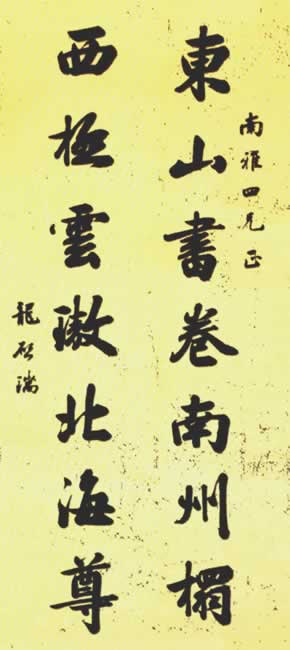 南雅四兄正
東山書卷南州榻
西極雲璈北海尊
龍啓瑞